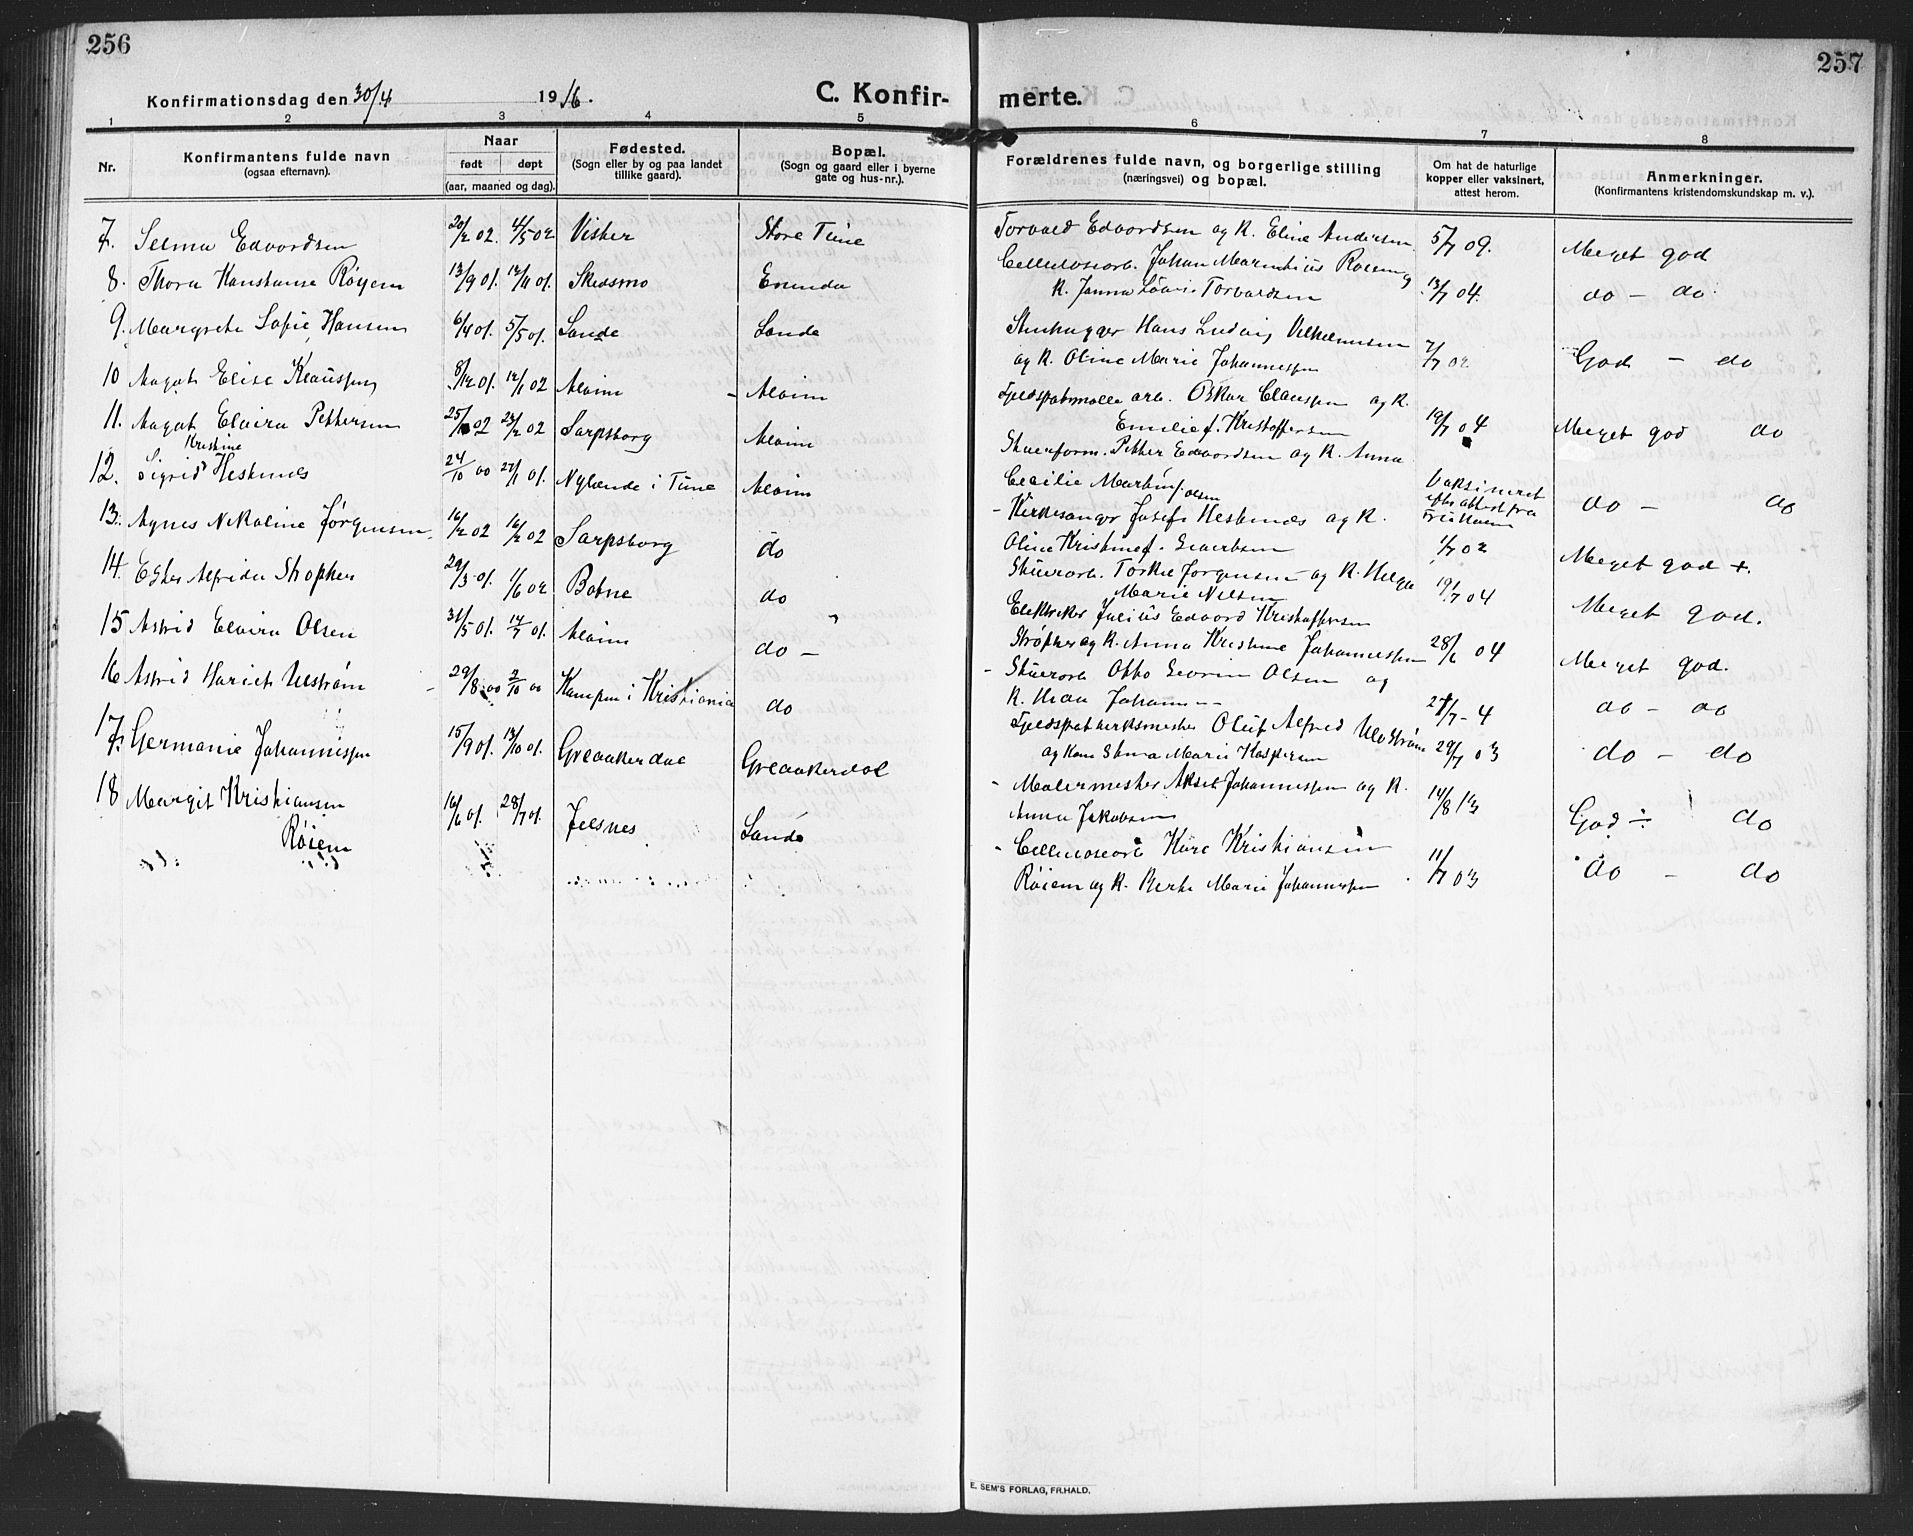 256
Konfirmationsdag den 30/4 1916.
C. Konfir-
1 2 3 4 5
Nr.
Konfirmantens fulde navn
(ogsaa efternavn).
Naar
født døpt
(aar, maaned og dag).
Fødested.
(Sogn eller by og paa landet
tillike gaard).
Bopæl.
(Sogn og gaard eller i byerne
gate og hus-nr.).
7. Selma Edvardsen 20/2 02. 4/5 02 Visker Store Tune
8. Thora Konstanse Røyem 13/9 01. Skedsmo Enenda
9. Margrete Sofie Hansen 6/4 01. 5/5 01. Sande Sande
10 Aagot Elise Klaussen 8/12 01. 12/1 02 Alvim - Alvim
11. Aagot Elvira Pettersen 25/1 02 23/2 02 Sarpsborg Alvim
Kristine
12. Sigrid Heskenes 24/10 00 27/1 01. Nylende i Tune Alvim
13. Agnes Nikoline Jørgensen. 16/2 02 16/2 02 Sarpsborg do
14. Ester Alfrida Strøpker 29/3 01. 1/6 02 Botne do
15 Astrid Elvira Olsen 31/5 01. 14/7 01. Alvim do -
16 Astrid Hariet Ulstrøm 29/8 00 2/10 00 Kampen i Kristiania do
17. Germanie Johannessen 15/9 01. 13/10 01. Greaakerdal Greaakerdal
18 Margit Kristiansen 16/6 01. 28/7 01. Jelsnes Sande
Røiem
257
merte.
6 7 8
Forældrenes fulde navn, og borgerlige stilling
(næringsvei) og bopæl.
Om hat de naturlige
kopper eller vaksinert,
attest herom.
Anmerkninger.
(Konfirmantens kristendomskundskap m. v.).
Torvald Edvardsen og K. Eline Andersen. 5/7 09. Meget god
Cellulosearb. Johan Marentius Røiem og
K. Janna Lovise Torvaldsen 13/7 04. do - do.
Stenhugger Hans Ludvig Vilhelmsen
og K. Oline Marie Johannessen 7/7 02 God - do
Feldspatmølle arb. Oskar Claussen og K.
Emilie f. Kristoffersen 19/7 04 Meget god do
Stuerform. Petter Edvardsen og K. Anna
Cecilie Martine f. Olsen Vaksineret
efter attest fra do - do
- Kirkesanger Josef Heskenes og K.
Oline Kristine f. Sivertsen 1/7 02 Meget god +.
Stuerarb. Torkel Jørgensen og K. Helga
Marie Nilsen 19/7 04 Meget god.
Elektriker Julius Edvard Kristoffersen
Strøpker og K. Anna Kristine Johannessen 28/6 04 Meget god.
- Stuerarb Otto Severin Olsen og
K. Johann - - 27/7 - 4 do - do
Feldspatverksmester Oluf Alfred Ulvstrøm
og Kone Stina Marie Kaspersen 29/7 03 do - do
- Malermester Aksel Johannessen og K.
Anna Jakobsen 14/8 13 God ÷ do
- Cellulosearb Kåre Kristiansen
Røiem og K. Berte Marie Johannessen 11/7 03 do - do
E. SEM'S FORLAG, FR.HALD.